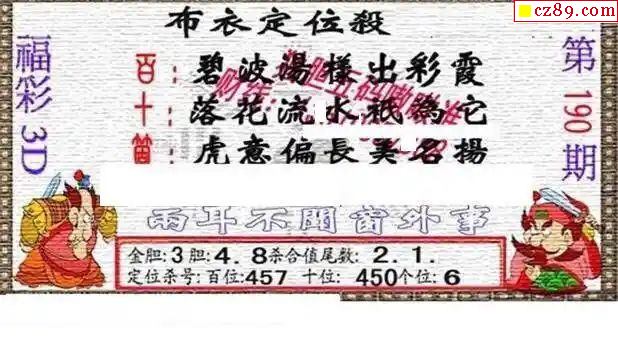 cz89.com
布衣定位殺
福彩3D
第190期
百：碧波湯樣出彩霞
十：落花流水祇為它
個：虎意偏長美名揚
兩耳不聞窗外事
金胆:3胆:4.8杀合值尾数:2.1.
定位杀号:百位:457 十位:450个位:6